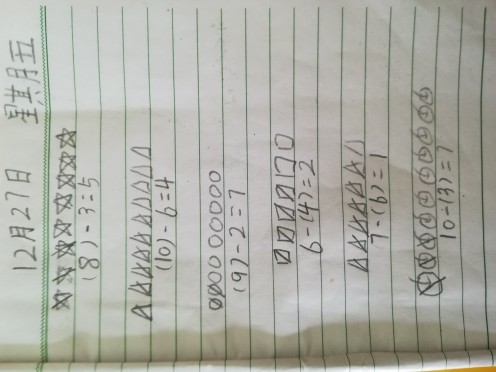 12月27日 星期五
(8)-3=5
(10)-6=4
(9)-2=7
6-(4)=2
7-(6)=1
10-(3)=7